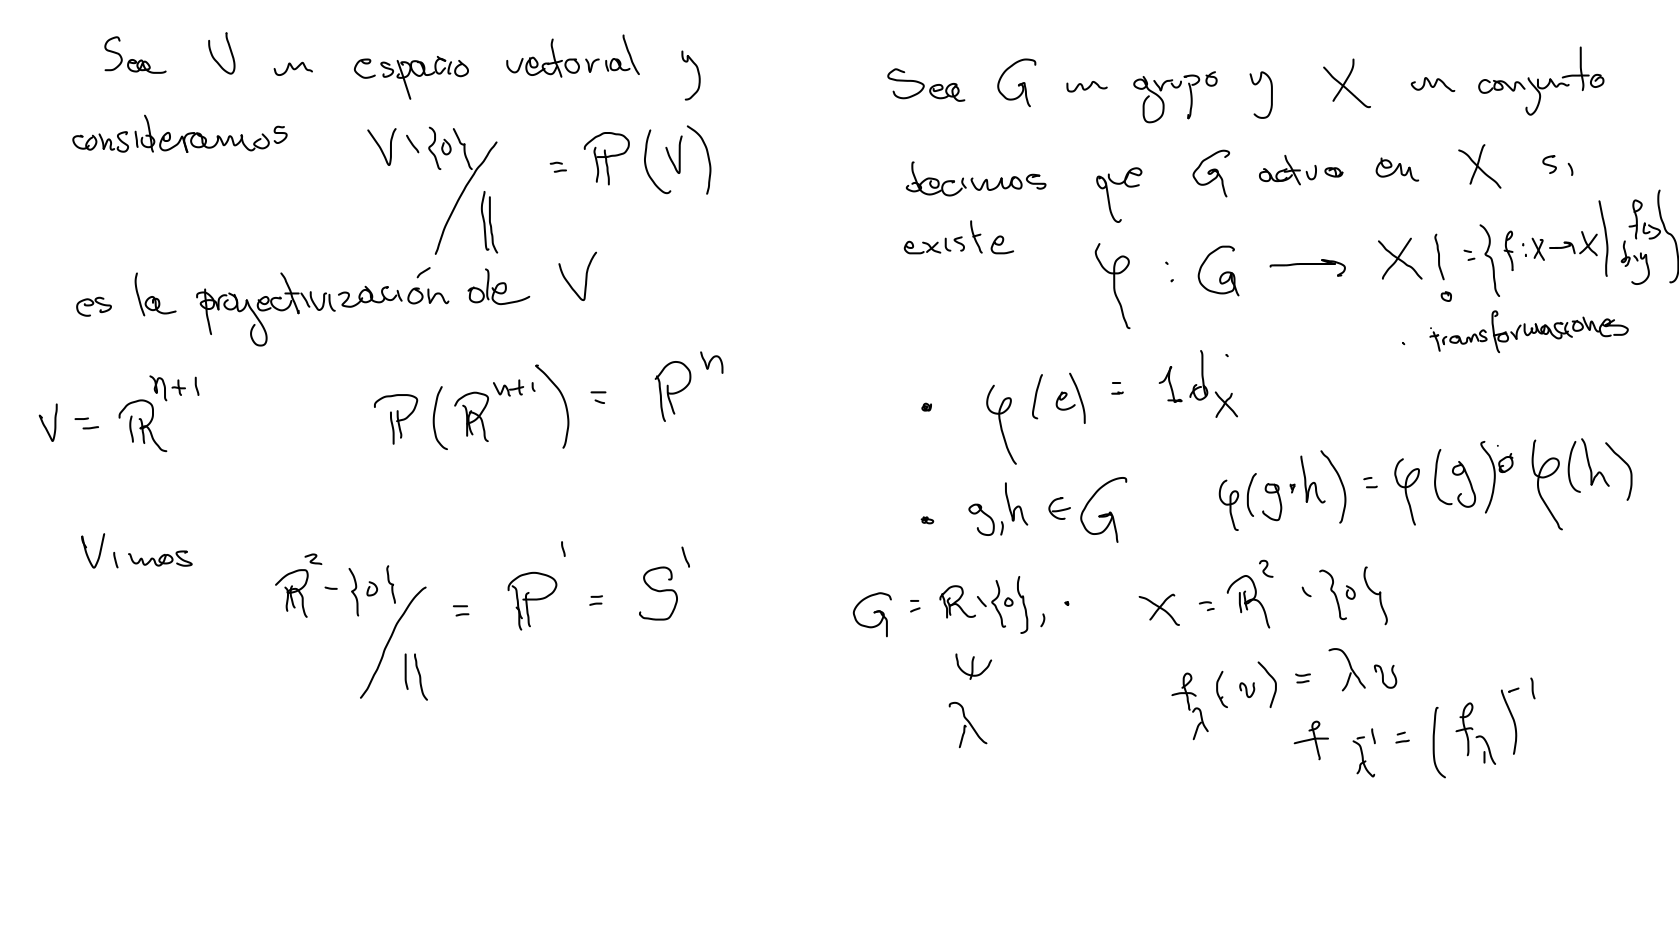 Sea V un espacio vectorial y
consideramos V\{0}/∥ = ℙ(V)
es la proyectivización de V
V = ℝⁿ⁺¹ ℙ(ℝⁿ⁺¹) = ℙⁿ
Vimos ℝ² - {0}/∥ = ℙ¹ = S¹
Sea G un grupo y X un conjunto
decimos que G actua en X si
existe φ : G → X! = {f : X → X | f es biy}
· transformaciones
• φ(e) = 1d_X
• g,h ∈ G φ(g·h) = φ(g)∘φ(h)
G = ℝ\{0}, · X = ℝ² \ {0}
ψ
λ f_λ(v) = λv
f_λ⁻¹ = (f_λ)⁻¹